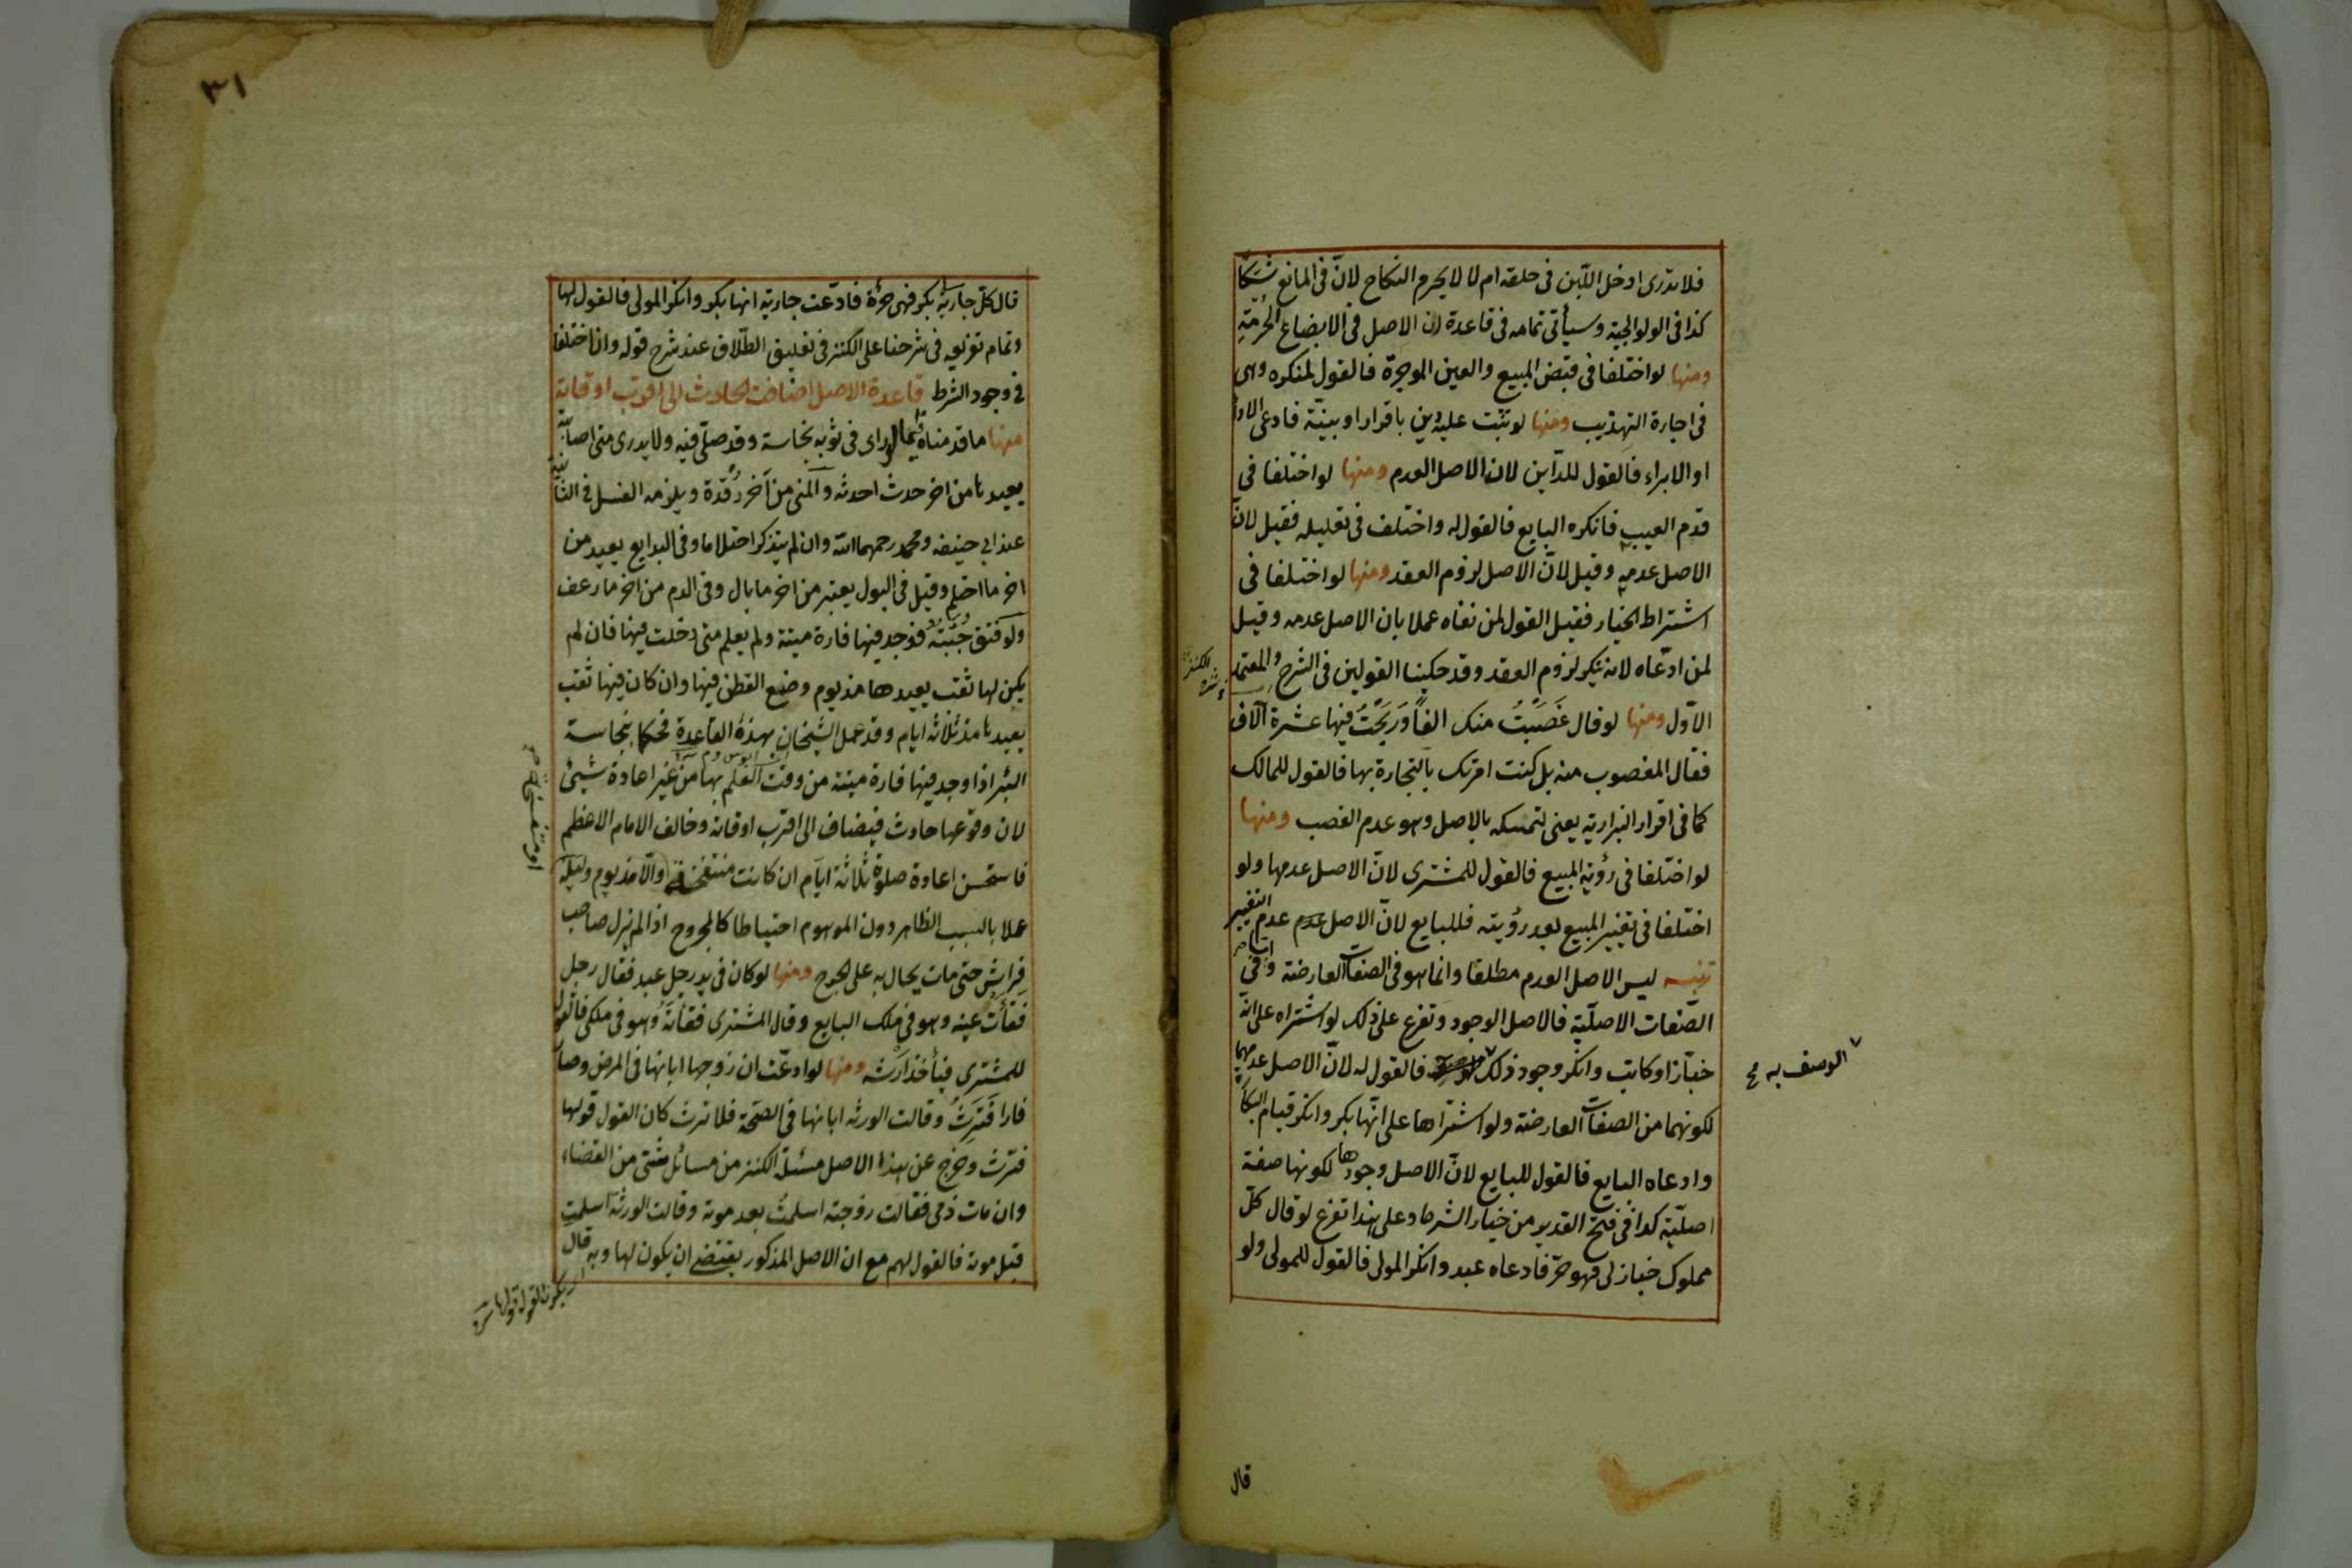 فلا تدرى ادخل اللبن فى حلقه ام لا لا يحرم النكاح لانّ فى المانع شكّا
كذا فى الولوالجية وسيأتى تمامه فى قاعدة ان الاصل فى الابضاع الحرمة
ومنها لو اختلفا فى قبض المبيع والعين الموجرة فالقول لمنكره وهى
فى اجارة التهذيب ومنها لو ثبت عليه دين باقرار او بينة فادعى الاداء
او الابراء فالقول للداين لان الاصل العدم ومنها لو اختلفا فى
قدم العيب فانكره البايع فالقول له واختلف فى تعليله فقيل لانّ
الاصل عدمه وقيل لانّ الاصل لزوم العقد ومنها لو اختلفا فى
اشتراط الخيار فقيل القول لمن نفاه عملا بان الاصل عدمه وقيل
لمن ادّعاه لانه ينكر لزوم العقد وقد حكينا القولين فى الشرح والمعتمد
الاوّل ومنها لو قال غَصَبْتُ منك الفاً وَرَبَحْتُ فيها عشرة آلاف
فقال المغصوب منه بل كنت امرتك بالتجارة بها فالقول للمالك
كما فى اقرار البزازية يعنى لتمسكه بالاصل وهو عدم الغصب ومنها
لو اختلفا فى رؤية المبيع فالقول للمشترى لانّ الاصل عدمها ولو
اختلفا فى تغيير المبيع بعد رؤيته فللبايع لانّ الاصل عدم عدم التغيير
تنبيه ليس الاصل العدم مطلقا وانما هو فى الصفات العارضة وامّا فى
الصّفات الاصليّة فالاصل الوجود وتفرع على ذلك لو اشتراه على انّه
خبّاز او كاتب وانكر وجود ذلك فالقول له لانّ الاصل عدمهما
لكونهما من الصفات العارضة ولو اشتراها على انّها بكر وانكر قيام البكارة
وادعاه البايع فالقول للبايع لانّ الاصل وجودها لكونها صفة
اصليّة كذا فى فتح القدير من خيار الشرط وعلى هذا تفرع لو قال كلّ
مملوك خباز لى فهو حرّ فادعاه عبد وانكر المولى فالقول للمولى ولو
الوصف به صح
الكنز
قال
٣١
قال كلّ جارية بكر فهى حرّة فادّعت جارية انها بكر وانكر المولى فالقول لها
وتمام تفريعه فى شرحنا على الكنز فى تعليق الطّلاق عند شرح قوله وان اختلفا
فى وجود الشرط قاعدة الاصل اضافت الحادث الى اقرب اوقاته
منها ما قدمناه فيما لو راى فى ثوبه نجاسة وقد صلّى فيه ولا يدرى متى اصابته
يعيدها من اخر حدث احدثه والمنى من آخر رُقدة ويلزمه الغسل فى الثانية
عند ابى حنيفه ومحمد رحمهما الله وان لم يتذكر احتلاما وفى البدايع يعيد من
اخر ما احتلم وقيل فى البول يعتبر من اخر ما بال وفى الدم من اخر ما رعف
ولو فتق جُبّتهُ فوجد فيها فارة ميتة ولم يعلم متى دخلت فيها فان لم
يكن لها ثقب يعيدها مذ يوم وضع القطن فيها وان كان فيها ثقب
يعيدها مذ ثلاثه ايام وقد عمل الشيخان بهذه القاعدة فحكما بنجاسة
البئر اذا وجد فيها فارة ميتة من وقت العلم بها من غير اعادة شيئ
لان وقوعها حادث فيضاف الى اقرب اوقاته وخالف الامام الاعظم
فاستحسن اعادة صلوة ثلاثة ايّام ان كانت منتفخة والّا مذ يوم وليلة
عملا بالسبب الظاهر دون الموهوم احتياطا كالمجروح اذا لم يزل صاحب
فراش حتى مات يحال به على الجرح ومنها لو كان فى يد رجل عبد فقال رجل
فقأت عينه وهو فى ملك البايع وقال المشترى فقأته وهو فى ملكى فالقول
للمشترى فيأخذ ارشه ومنها لو ادعت ان زوجها ابانها فى المرض وصار
فارا فَتَرِثُ وقالت الورثه ابانها فى الصّحة فلا ترث كان القول قولها
فترث وخرج عن هذا الاصل مسئلة الكنز من مسائل شتى من القضاء
وان مات ذمى فقالت زوجته اسلمتُ بعد موته وقالت الورثة اسلمتِ
قبل موته فالقول لهم مع ان الاصل المذكور يقتضى ان يكون لها وبه قال